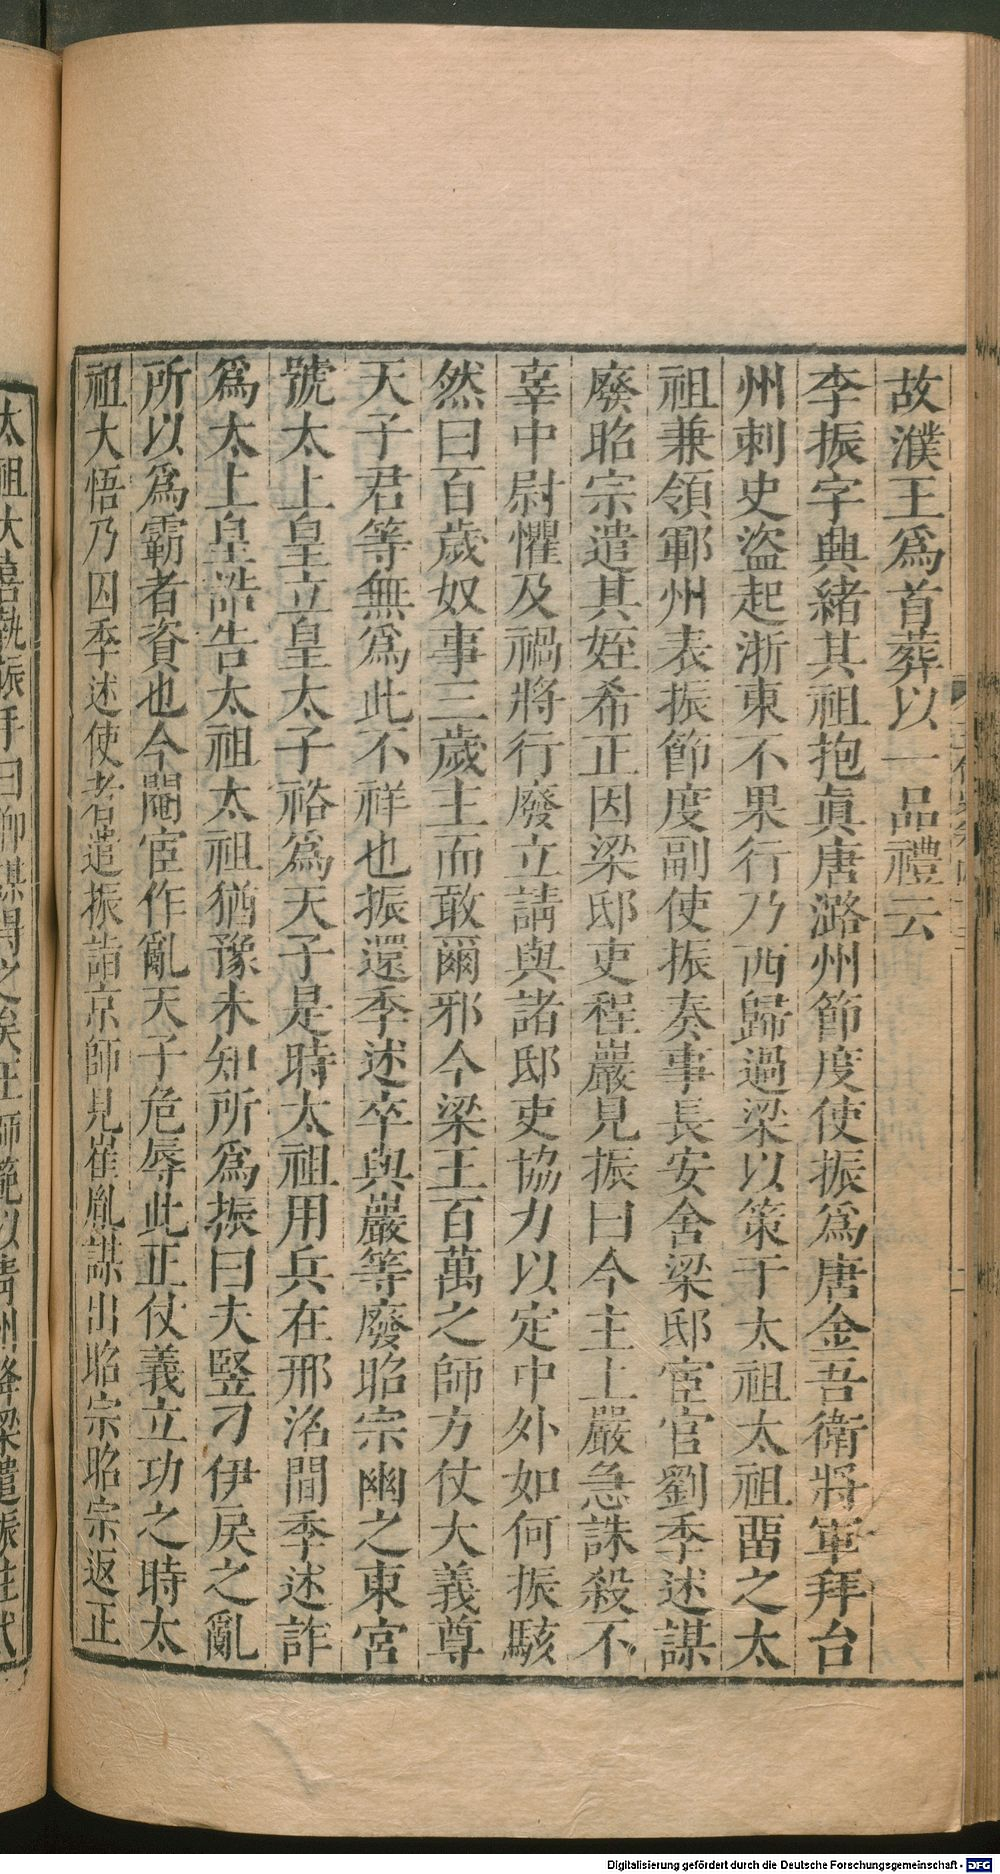 故濮王爲首葬以一品禮云
李振字興緒其祖抱眞唐潞州節度使振爲唐金吾衛將軍拜台
州刺史盜起浙東不果行乃西歸過梁以策干太祖太祖畱之太
祖兼領鄆州表振節度副使振奏事長安舍梁邸宦官劉季述謀
廢昭宗遣其姪希正因梁邸吏程巖見振曰今主上嚴急誅殺不
辜中尉懼及禍將行廢立請與諸邸吏協力以定中外如何振駭
然曰百歲奴事三歲主而敢爾邪今梁王百萬之師方仗大義尊
天子君等無爲此不祥也振還季述卒與巖等廢昭宗幽之東宮
號太上皇立皇太子裕爲天子是時太祖用兵在邢洺間季述詐
爲太上皇誥告太祖太祖猶豫未知所爲振曰夫豎刁伊戾之亂
所以爲霸者資也今閹宦作亂天子危辱此正仗義立功之時太
祖大悟乃囚季述使者遣振詣京師見崔胤謀出昭宗昭宗返正
太祖大喜執振手曰卿謀得之矣王師範以青州降梁遣振往代
Digitalisierung gefördert durch die Deutsche Forschungsgemeinschaft - DFG